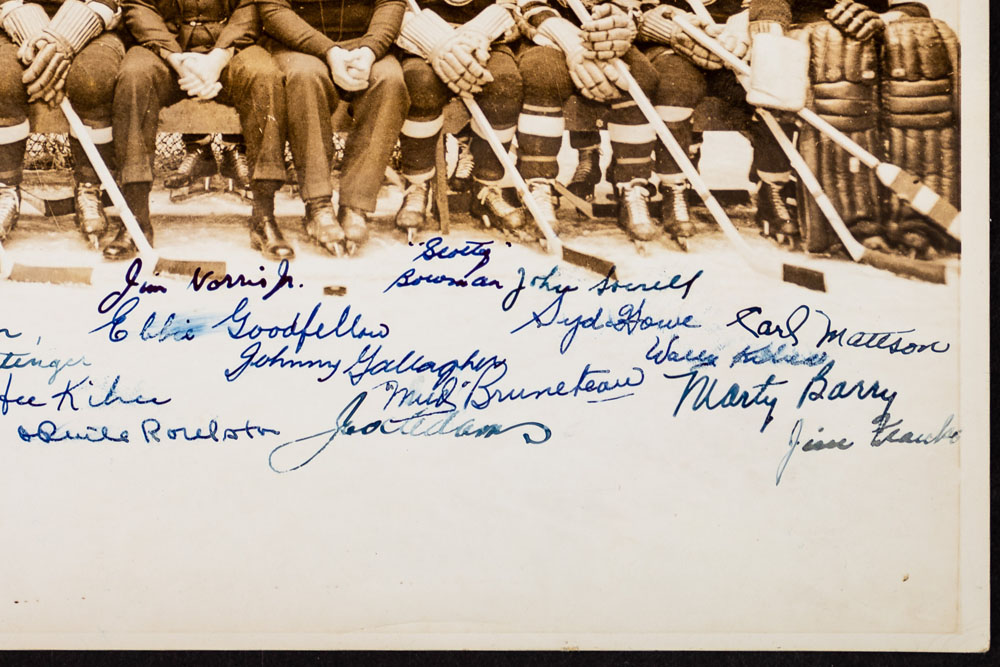 Jim Norris Jr.
"Scotty"
Bowman
John Sorrell
Ebbie Goodfellow
Syd Howe
Carl Mattson
Johnny Gallagher
Wally
Hec Kilrea
"Mud" Bruneteau
Marty Barry
Rolly Roulston
Jack Adams
Jim